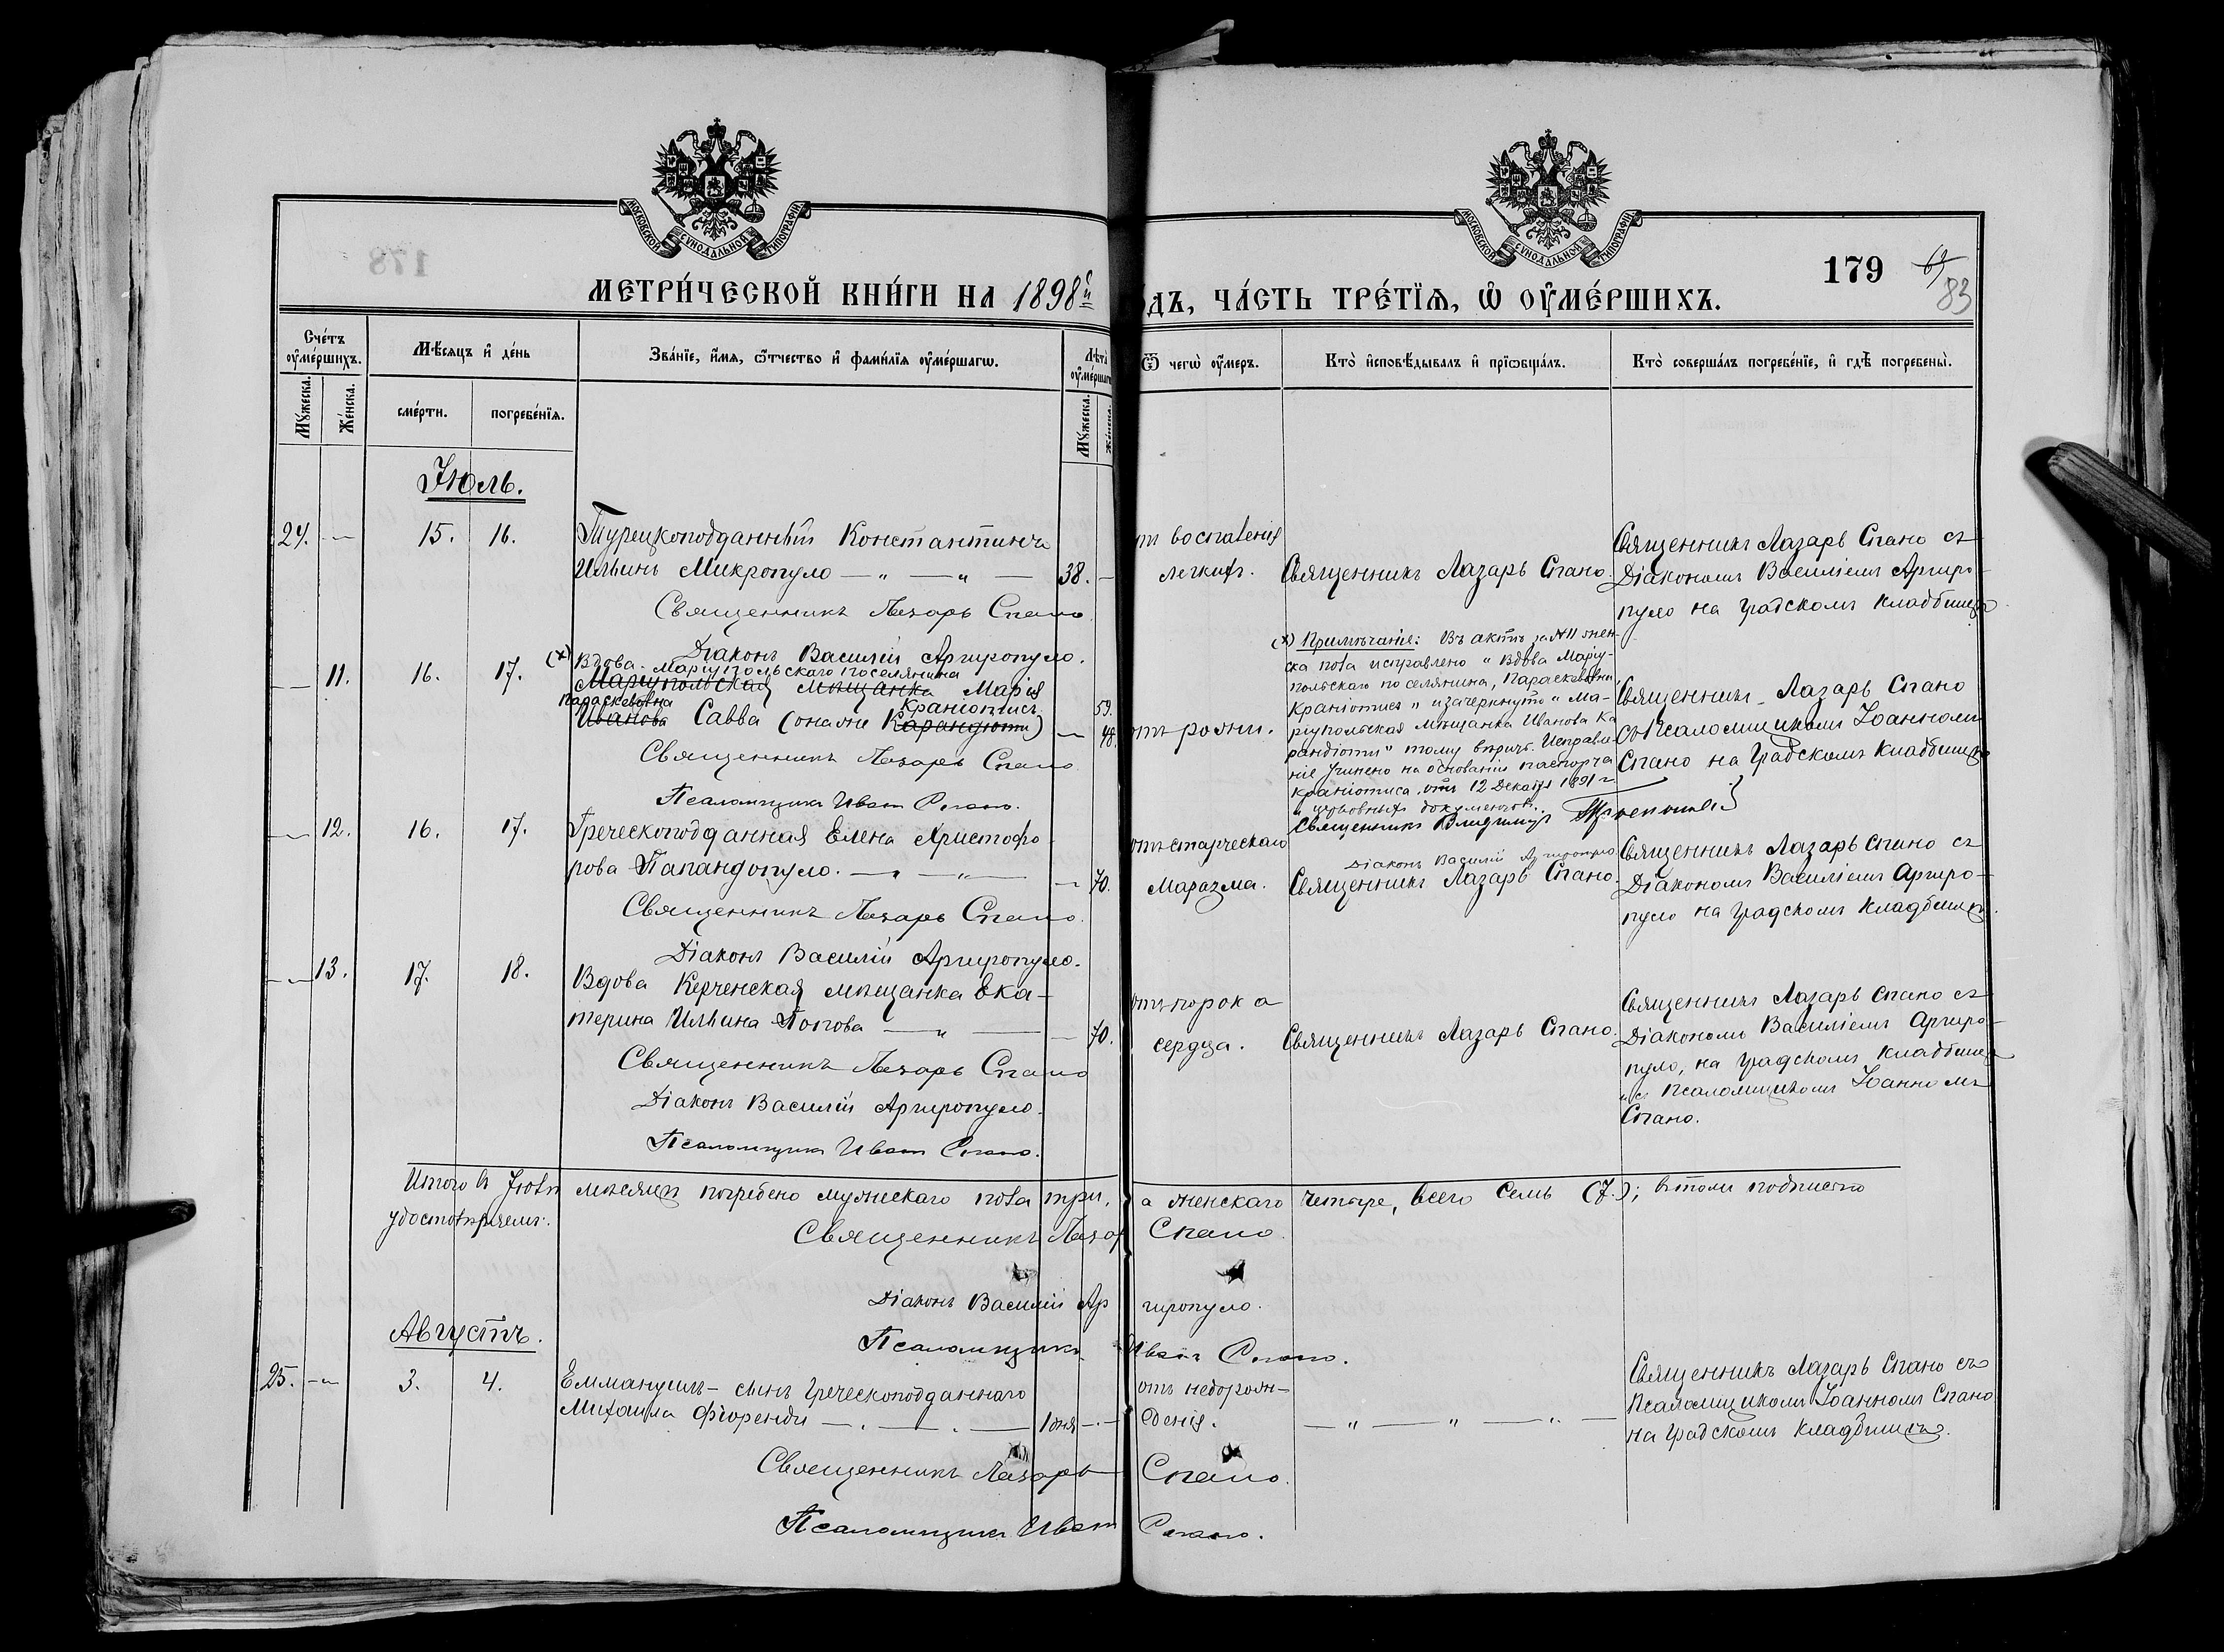 МОСКОВСКОЙ СѴНОДАЛЬНОЙ ТИПОГРАФІИ
МОСКОВСКОЙ СѴНОДАЛЬНОЙ ТИПОГРАФІИ
178
179
69
83
МЕТРИ́ЧЕСКОЙ КНИ́ГИ НА 1898й
ОДЪ, ЧА́СТЬ ТРЕ́ТЇѦ, Ѡ҆ ОУ҆МЕ́РШИХЪ.
Сче́тъ оу҆ме́ршихъ.
Мꙋ́жеска.
Же́нска.
Мѣ́сѧцъ и҆ де́нь
сме́рти.
погребе́нїѧ.
Зва́нїе, и҆́мѧ, ѻ҆́тчество и҆ фами́лїѧ оу҆ме́ршагѡ.
Лѣ́та оу҆ме́ршаг
Мꙋ́жеска.
Же́нска.
Ѿ чегѡ̀ оу҆́меръ.
Кто̀ и҆сповѣ́дывалъ и҆ прїѡбща́лъ.
Кто̀ соверша́лъ погребе́нїе, и҆ гдѣ̀ погребены̀.
Іюль.
24. — 15. 16. Турецкоподданный Константинъ
Ильинъ Микропуло — „ — „ — 38. —
Священникъ Лазарь Спано
Діаконъ Василій Аргиропуло.
тъ воспаленія
легкихъ.
Священникъ Лазарь Спано.
Священникъ Лазарь Спано съ
Діакономъ Василіемъ Аргиро-
пуло на градскомъ кладбищѣ.
— 11. 16. 17. (х) Вдова Маріупольскаго поселянина
Маріупольская мѣщанка Марія
Параскевовна Краніотисъ
Иванова Савва (она же Карандюти) — 59. 48.
Священникъ Лазарь Спано
Псаломщикъ Иванъ Спано.
отъ рожи.
(х) Примѣчаніе: Въ актѣ за №11 жен-
ска пола исправлено „Вдова Маріу-
польскаго поселянина, Параскевовна,
Краніотисъ" и зачеркнуто „Ма-
ріупольская мѣщанка Иванова Ка
рандіоти" тому вѣрить. Исправле-
ніе учинено на основаніи паспорта
Краніотиса отъ 12 Декабря 1891 г.
и церковныхъ документовъ.
Священникъ Владимиръ
Священникъ Лазарь Спано
съ Псаломщикомъ Іоанномъ
Спано на градскомъ кладбищѣ
— 12. 16. 17. Греческоподданная Елена Христофо
рова Папандопуло. — „ — — 70.
Священникъ Лазарь Спано.
Діаконъ Василій Аргиропуло.
отъ старческаго
Маразма.
Діаконъ Василій Аргиропуло
Священникъ Лазарь Спано.
Священникъ Лазарь Спано съ
Діакономъ Василіемъ Аргиро-
пуло на градскомъ кладбищѣ.
— 13. 17. 18. Вдова Керченская мѣщанка Ека-
терина Ильина Попова — „ — — 70.
Священникъ Лазарь Спано
Діаконъ Василій Аргиропуло.
Псаломщикъ Иванъ Спано.
отъ порока
сердца.
Священникъ Лазарь Спано.
Священникъ Лазарь Спано съ
Діакономъ Василіемъ Аргиро-
пуло, на градскомъ кладбищѣ
и съ Псаломщикомъ Іоанномъ
Спано.
Итого въ Іюлѣ мѣсяцѣ погребено мужескаго пола три, а женскаго четыре, всего семь (7.); въ томъ подписью
удостовѣряемъ:
Священникъ Лазарь Спано
Діаконъ Василій Аргиропуло.
Псаломщикъ Иванъ Спано.
Августъ.
25. — 3. 4. Еммануилъ – сынъ греческоподданнаго
Михаила Фіоренди — . — . — 1 дня — . —
отъ недорож-
денія.
— „ — „ — „ —
Священникъ Лазарь Спано съ
Псаломщикомъ Іоанномъ Спано
на градскомъ кладбищѣ.
Священникъ Лазарь Спано.
Псаломщикъ Иванъ Спано.